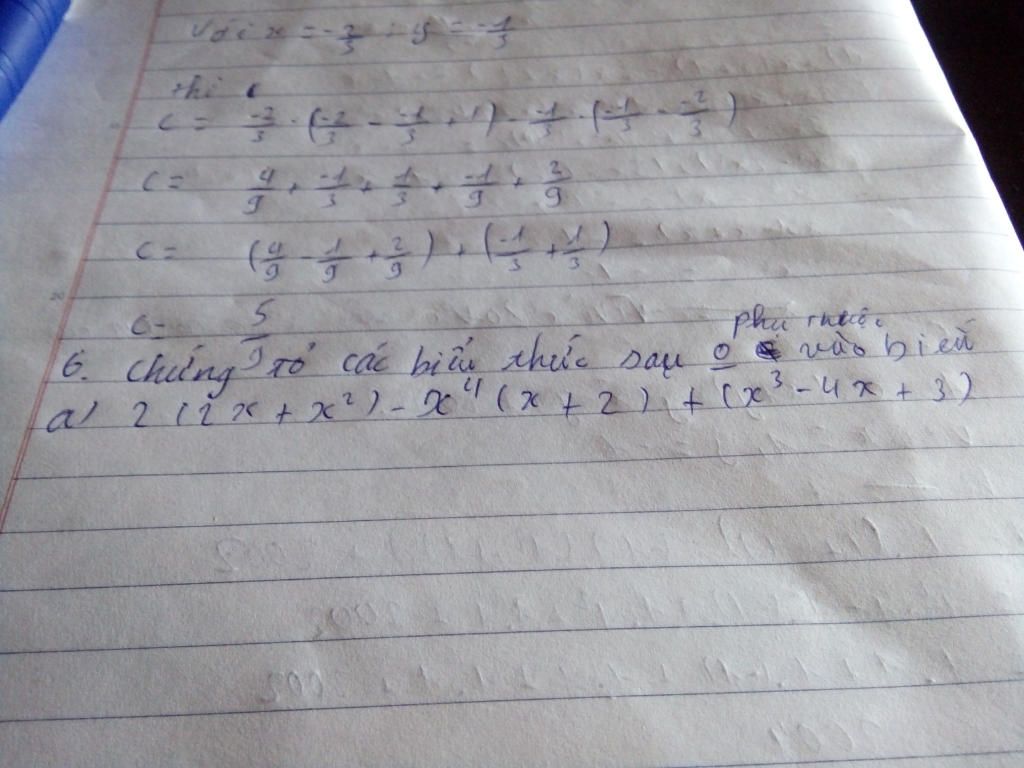 Với x = -2/3 ; y = -1/3
thì
C = -2/3 . (-2/3 - -1/3 + 1) - -1/3 . (-1/3 - -2/3)
C = 4/9 + -1/3 + 1/3 + -1/9 + 2/9
C = (4/9 - 1/9 + 2/9) + (-1/3 + 1/3)
C = 5/9
phụ thuộc
6. chứng tỏ các biểu thức sau 0 vào biến
a) 2(2x + x²) - x⁴(x + 2) + (x³ - 4x + 3)